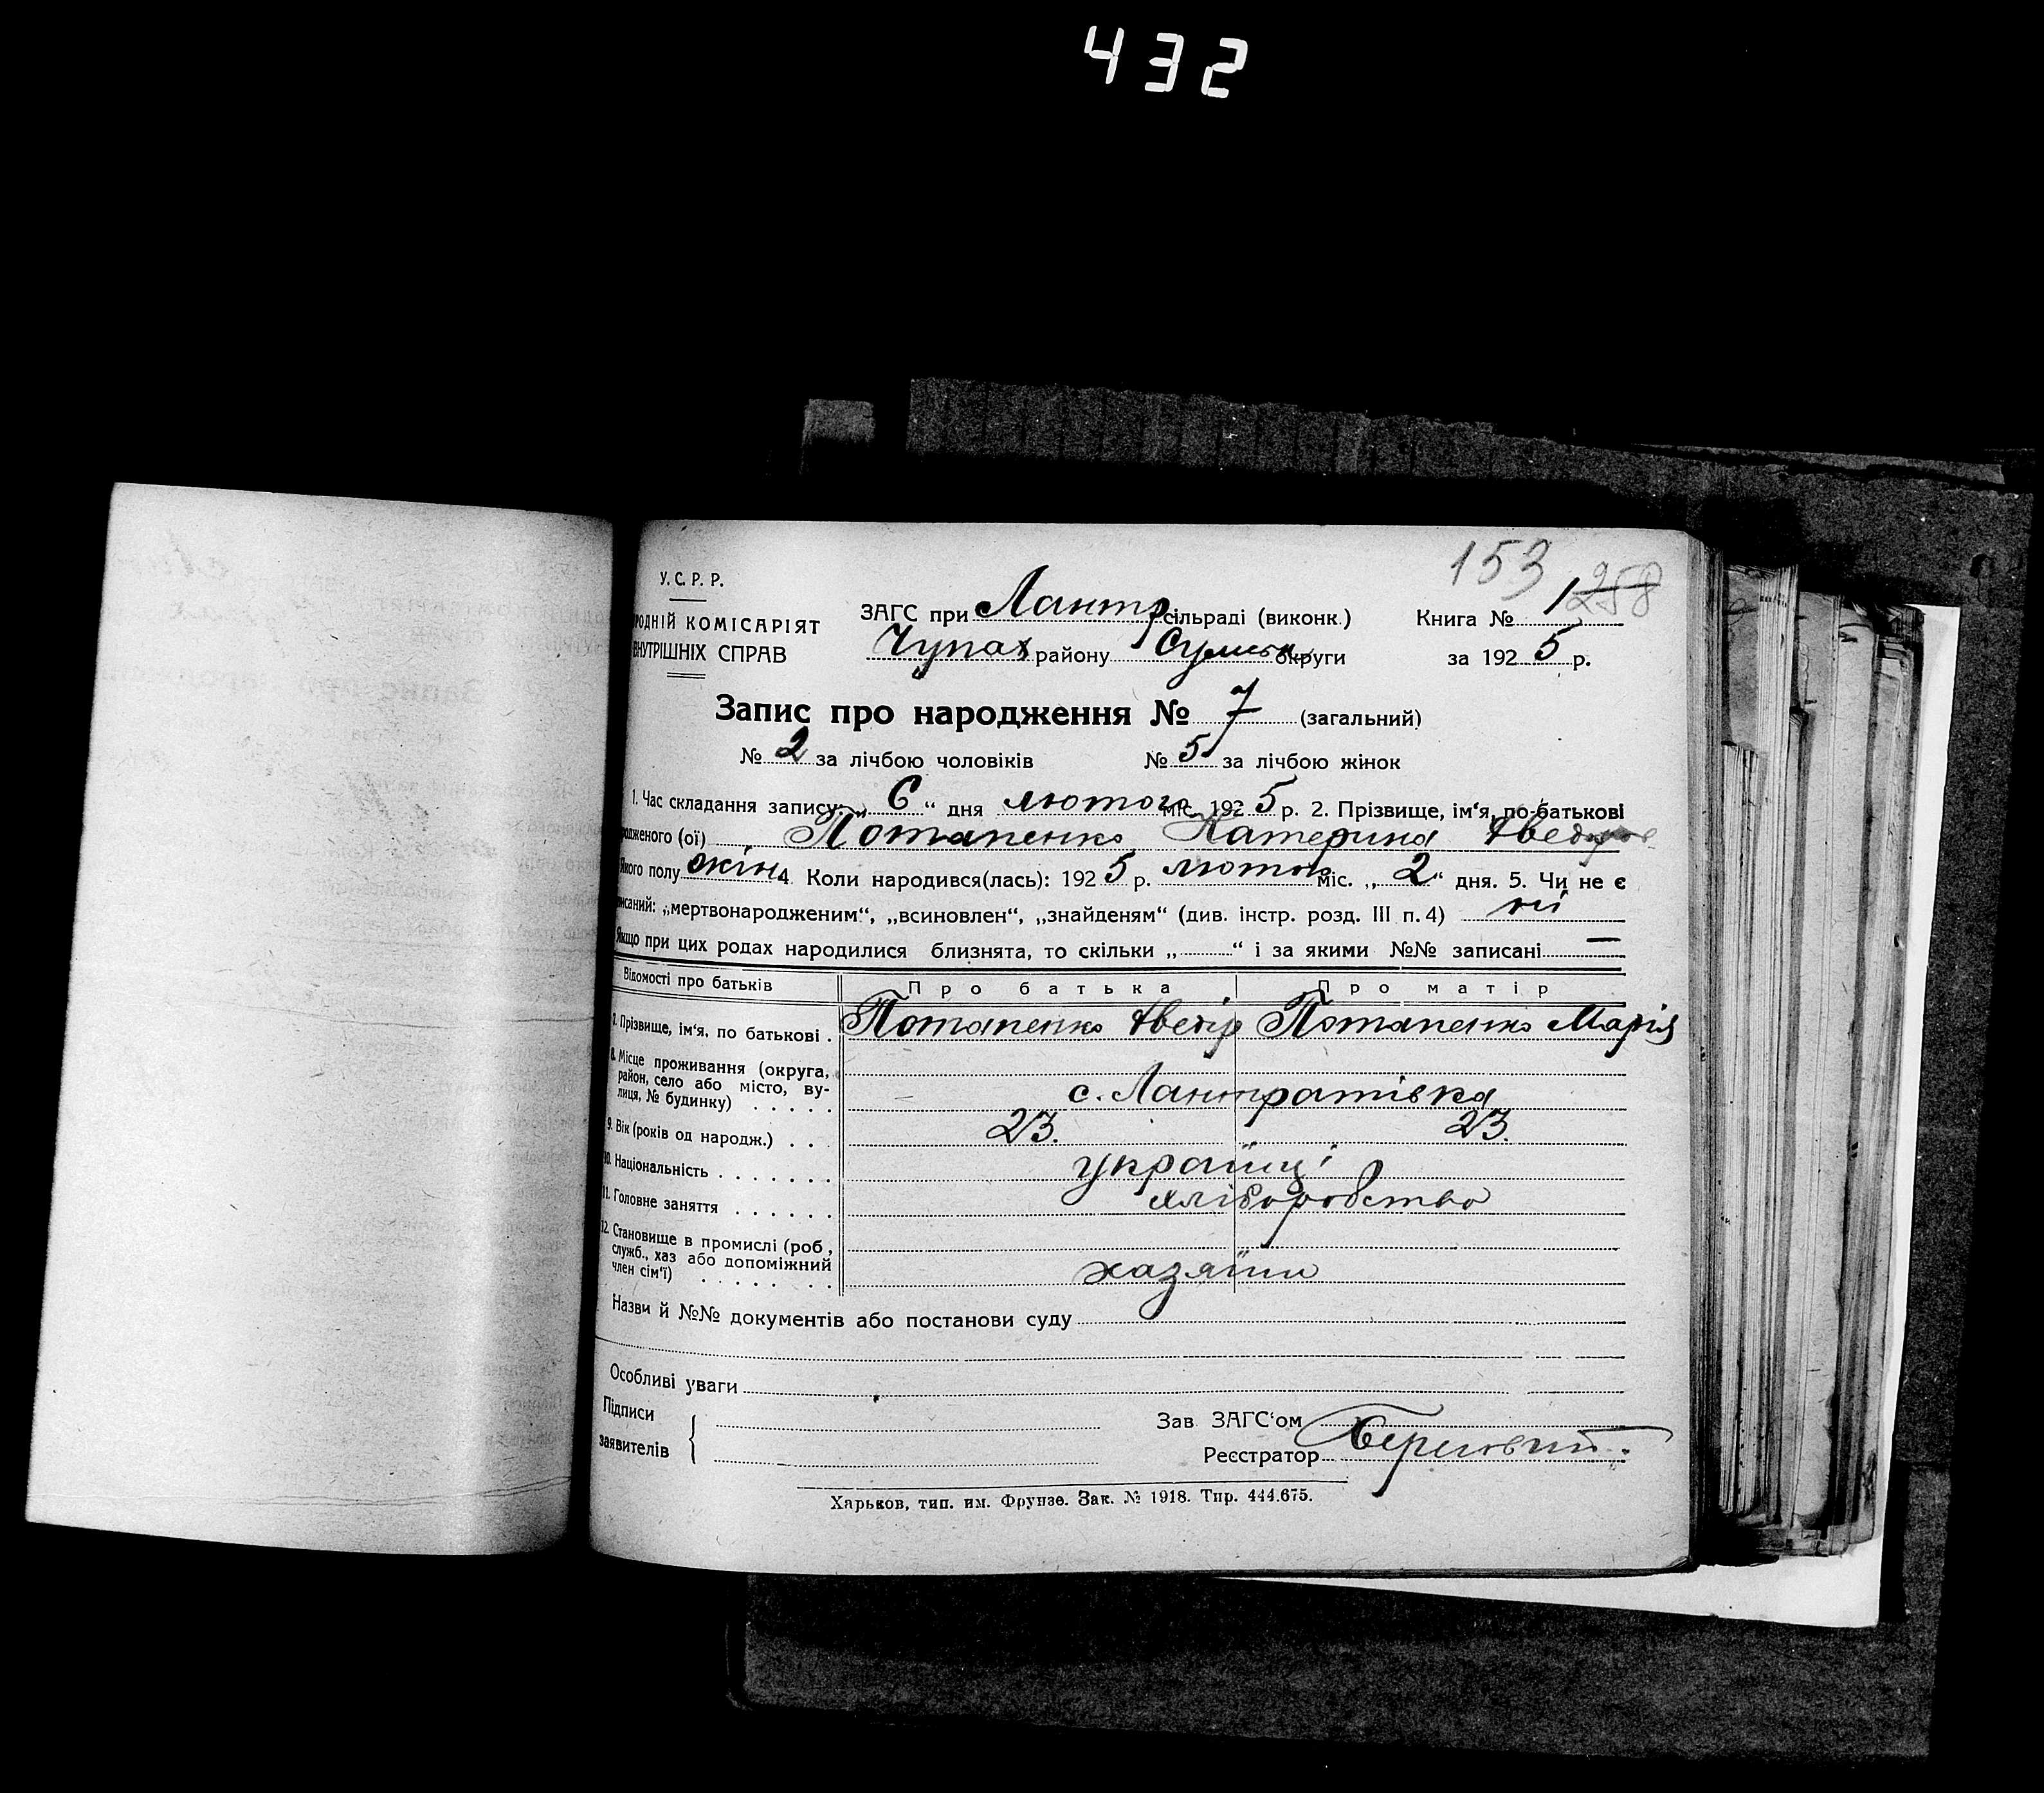 432
153
258
У. С. Р. Р.
РОДНІЙ КОМІСАРІЯТ
ВНУТРІШНІХ СПРАВ
ЗАГС при Лантр. сільраді (виконк.)
Книга № 1
Чупах району Сумськ округи
за 1925 р.
Запис про народження № 7 (загальний)
№ 2 за лічбою чоловіків № 5 за лічбою жінок
1. Час складання запису: „ 6 “ дня лютого міс. 1925 р. 2. Прізвище, ім‘я, по-батькові
родженого (ої) Потапенко Катерина Яведоров
Якого полу жін. 4. Коли народився(лась): 1925 р. лютого міс. „ 2 “ дня. 5. Чи не є
писаний: „мертвонародженим“, „всиновлен“, „знайденям“ (див. інстр. розд. III п. 4) ні
Якщо при цих родах народилися близнята, то скільки „ “ і за якими №№ записані —
Відомості про батьків Про батька Про матір
7. Прізвище, ім‘я, по батькові . Потапенко Яведір Потапенко Марія
8. Місце проживання (округа,
район, село або місто, ву-
лиця, № будинку) . . . . .
с. Лантратівка
9. Вік (років од народж.) . . . 23. 23.
10. Національність . . . . . . . українці
11. Головне заняття . . . . . . хліборобство
12. Становище в промислі (роб.,
служб., хаз або допоміжний
член сім‘ї) . . . . . . .
хазяїни
Назви й №№ документів або постанови суду
Особливі уваги
Підписи
заявителів
Зав. ЗАГС‘ом
Реєстратор
Харьков, тип. им. Фрунзе. Зак. № 1918. Тир. 444.675.